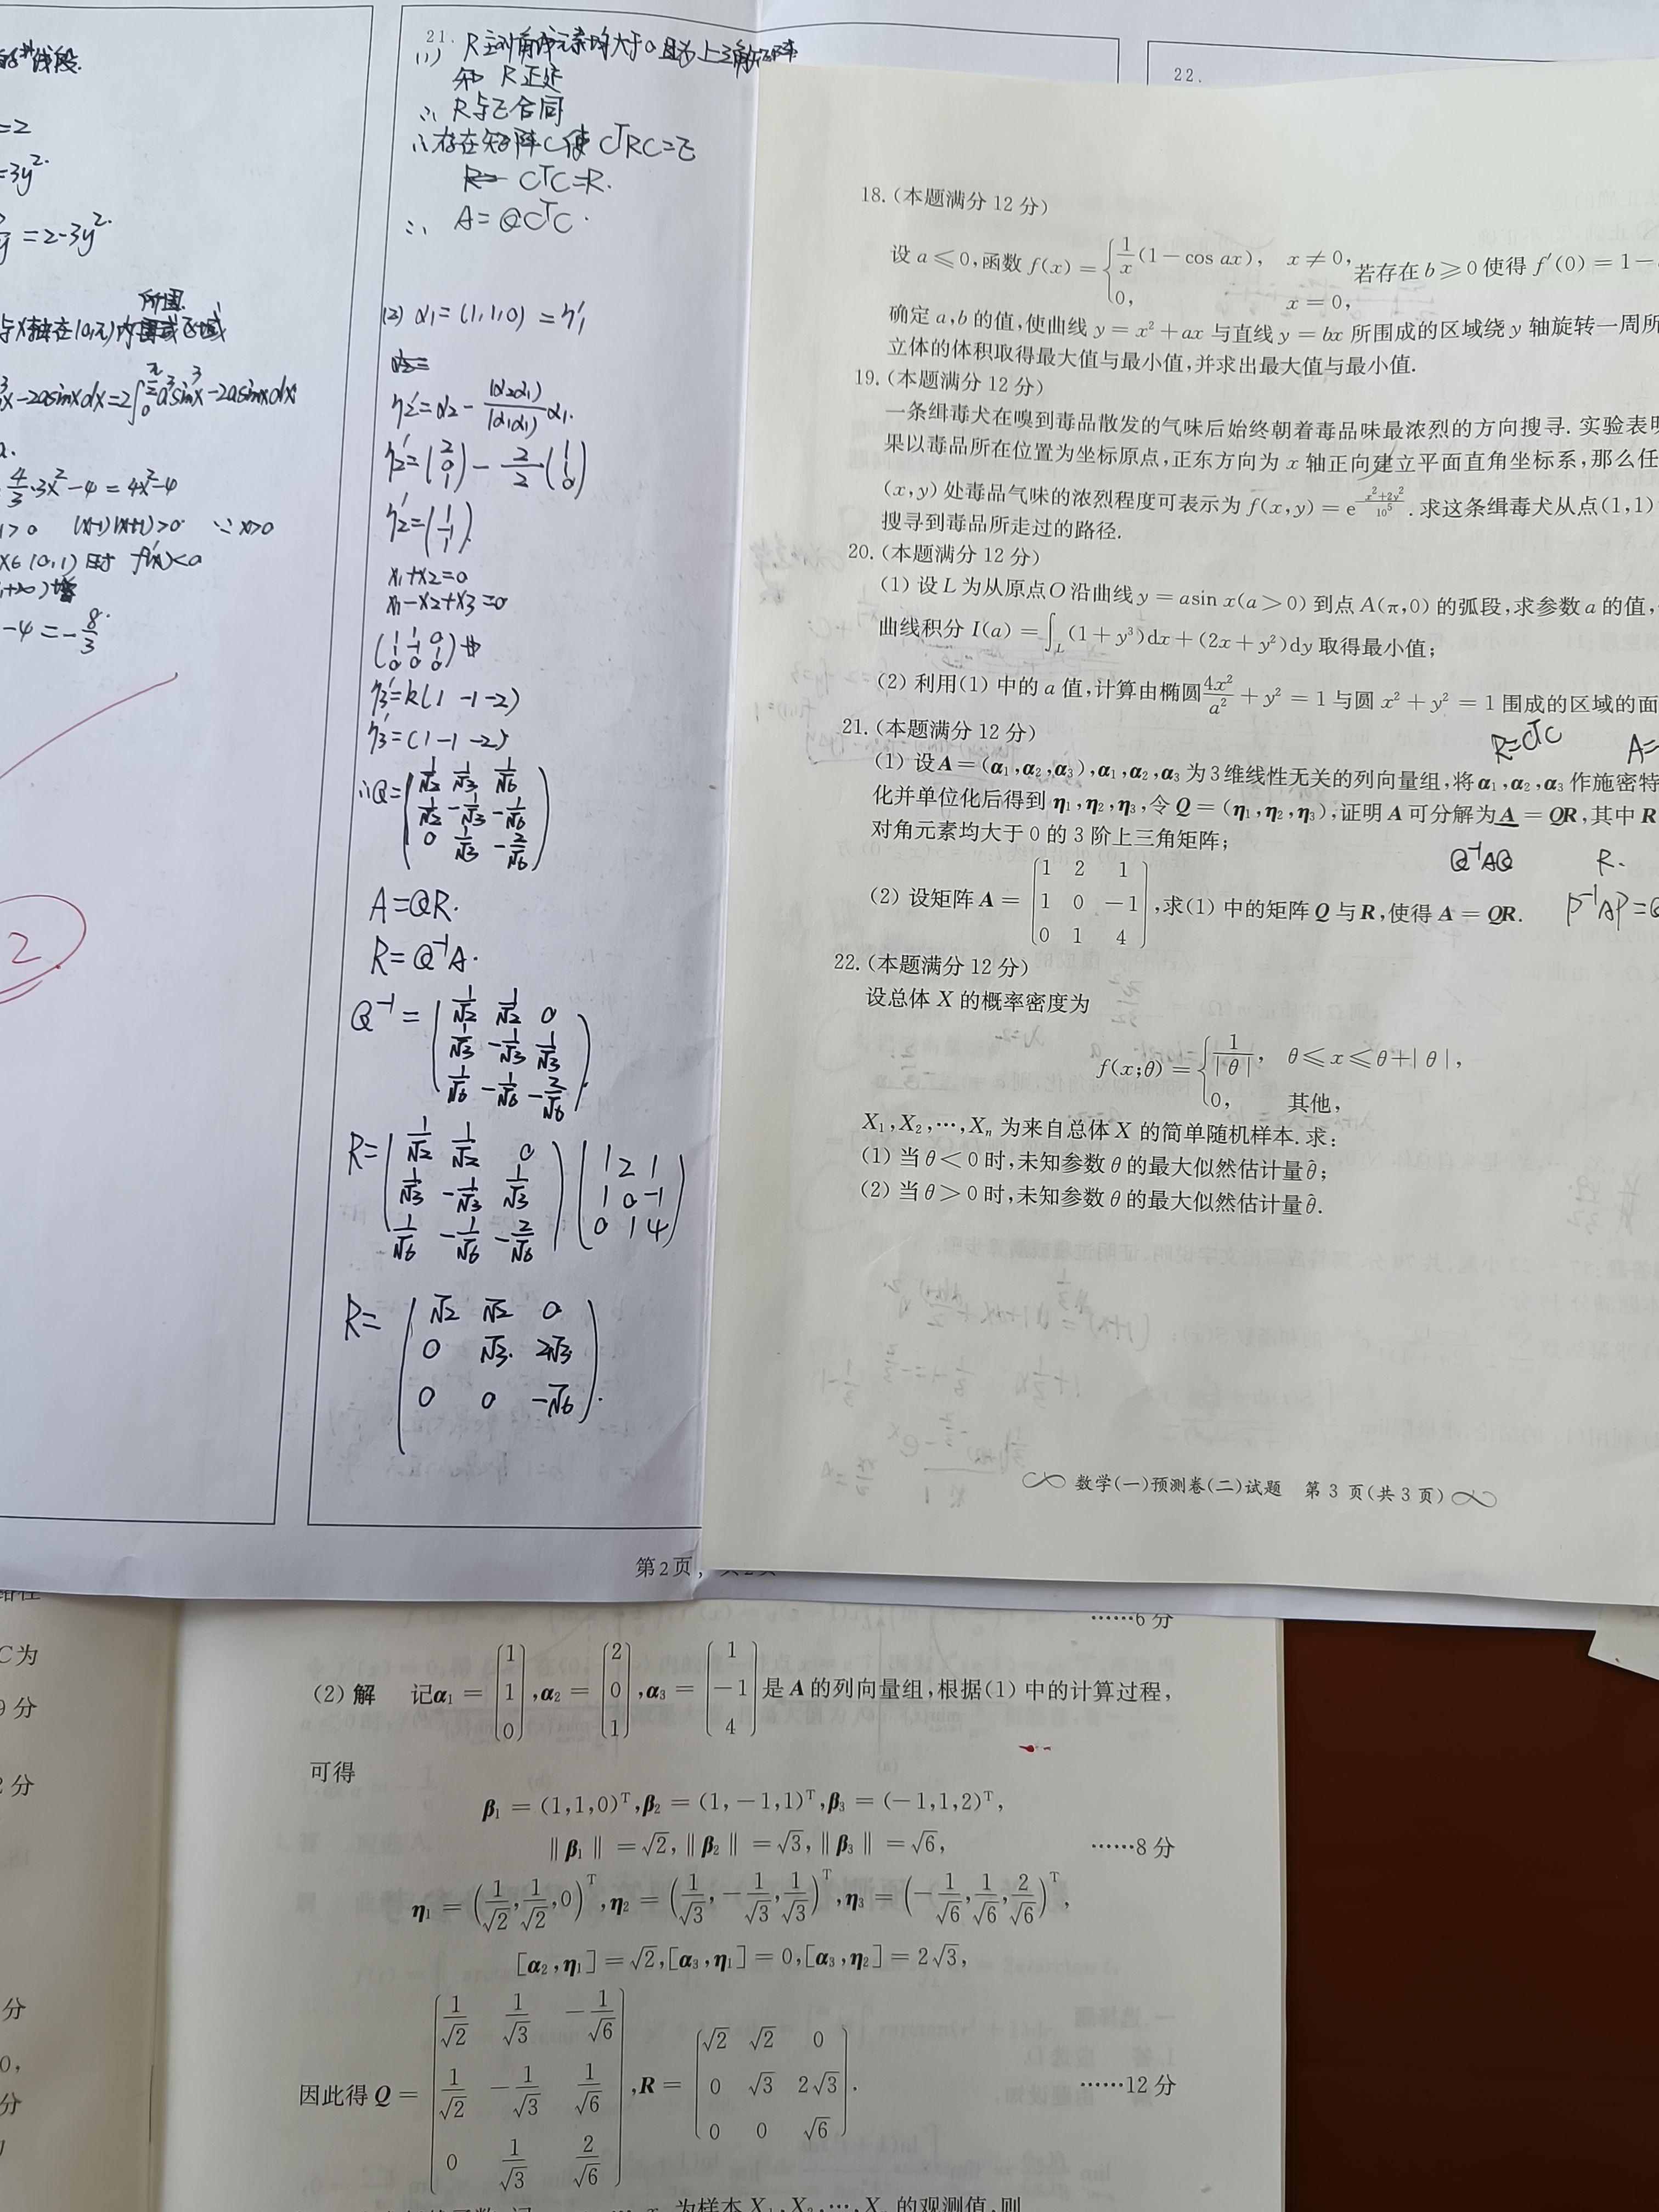 =2
=3y².
=2-3y².
所围
3x-2asinxdx=2∫a³sin³x-2asinxdx
4/3·3x²-4=4x²-4
(x-1)(x+1)>0 ∵x>0
x∈(0,1)时 f'(x)<0
-4=-8/3.
2
21.
(1) R主对角线元素均大于0且为上三角矩阵
R正定
∴R与E合同
∴存在矩阵C使 CᵀRC=E
CᵀC=R.
∴ A=QCᵀC.
(2) α₁=(1,1,0)=η₁'
η₂'=α₂-(α₂α₁)/(α₁α₁)α₁.
η₂'=(2 0 1)-2/2(1 1 0)
η₂'=(1 -1 1)
x₁+x₂=0
x₁-x₂+x₃=0
η₃'=k(1 -1 -2)
η₃'=(1 -1 -2)
∴Q=(1/√2 1/√3 1/√6
1/√2 -1/√3 -1/√6
0 1/√3 -2/√6)
A=QR.
R=Q⁻¹A.
Q⁻¹=(1/√2 1/√2 0
1/√3 -1/√3 1/√3
1/√6 -1/√6 -2/√6)
R=(1/√2 1/√2 0)(1 2 1
1/√3 -1/√3 1/√3 1 0 -1
1/√6 -1/√6 -2/√6)(0 1 4)
R=(√2 √2 0
0 √3. 2√3
0 0 -√6).
第2页,
22.
18.(本题满分12分)
设a≤0,函数f(x)={1/x(1-cos ax), x≠0, 若存在b≥0使得f′(0)=1-
0, x=0,
确定a,b的值,使曲线y=x²+ax与直线y=bx所围成的区域绕y轴旋转一周所
立体的体积取得最大值与最小值,并求出最大值与最小值.
19.(本题满分12分)
一条缉毒犬在嗅到毒品散发的气味后始终朝着毒品味最浓烈的方向搜寻.实验表明
果以毒品所在位置为坐标原点,正东方向为x轴正向建立平面直角坐标系,那么任
(x,y)处毒品气味的浓烈程度可表示为f(x,y)=e^((x²+2y²)/10⁵).求这条缉毒犬从点(1,1)
搜寻到毒品所走过的路径.
20.(本题满分12分)
(1)设L为从原点O沿曲线y=asin x(a>0)到点A(π,0)的弧段,求参数a的值,
曲线积分I(a)=∫_L(1+y³)dx+(2x+y²)dy取得最小值;
(2)利用(1)中的a值,计算由椭圆4x²/a²+y²=1与圆x²+y²=1围成的区域的面
21.(本题满分12分)
R=CᵀC A=
(1)设A=(α₁,α₂,α₃),α₁,α₂,α₃为3维线性无关的列向量组,将α₁,α₂,α₃作施密特
化并单位化后得到η₁,η₂,η₃,令Q=(η₁,η₂,η₃),证明A可分解为A=QR,其中R
对角元素均大于0的3阶上三角矩阵;
Q⁻¹AQ R.
(2)设矩阵A=(1 2 1
1 0 -1
0 1 4),求(1)中的矩阵Q与R,使得A=QR.
P⁻¹AP=
22.(本题满分12分)
设总体X的概率密度为
f(x;θ)={1/|θ|, θ≤x≤θ+|θ|,
0, 其他,
X₁,X₂,⋯,Xₙ为来自总体X的简单随机样本.求:
(1)当θ<0时,未知参数θ的最大似然估计量θ̂;
(2)当θ>0时,未知参数θ的最大似然估计量θ̂.
数学(一)预测卷(二)试题 第3页(共3页)
C为
9分
2分
分
0,
分
……6分
(2)解 记α₁=(1 1 0),α₂=(2 0 1),α₃=(1 -1 4)是A的列向量组,根据(1)中的计算过程,
可得
β₁=(1,1,0)ᵀ,β₂=(1,-1,1)ᵀ,β₃=(-1,1,2)ᵀ,
‖β₁‖=√2,‖β₂‖=√3,‖β₃‖=√6, ……8分
η₁=(1/√2,1/√2,0)ᵀ,η₂=(1/√3,-1/√3,1/√3)ᵀ,η₃=(-1/√6,1/√6,2/√6)ᵀ,
[α₂,η₁]=√2,[α₃,η₁]=0,[α₃,η₂]=2√3,
因此得Q=(1/√2 1/√3 -1/√6
1/√2 -1/√3 1/√6
0 1/√3 2/√6),R=(√2 √2 0
0 √3 2√3
0 0 √6). ……12分
为样本X₁,X₂,⋯,X 的观测值,则